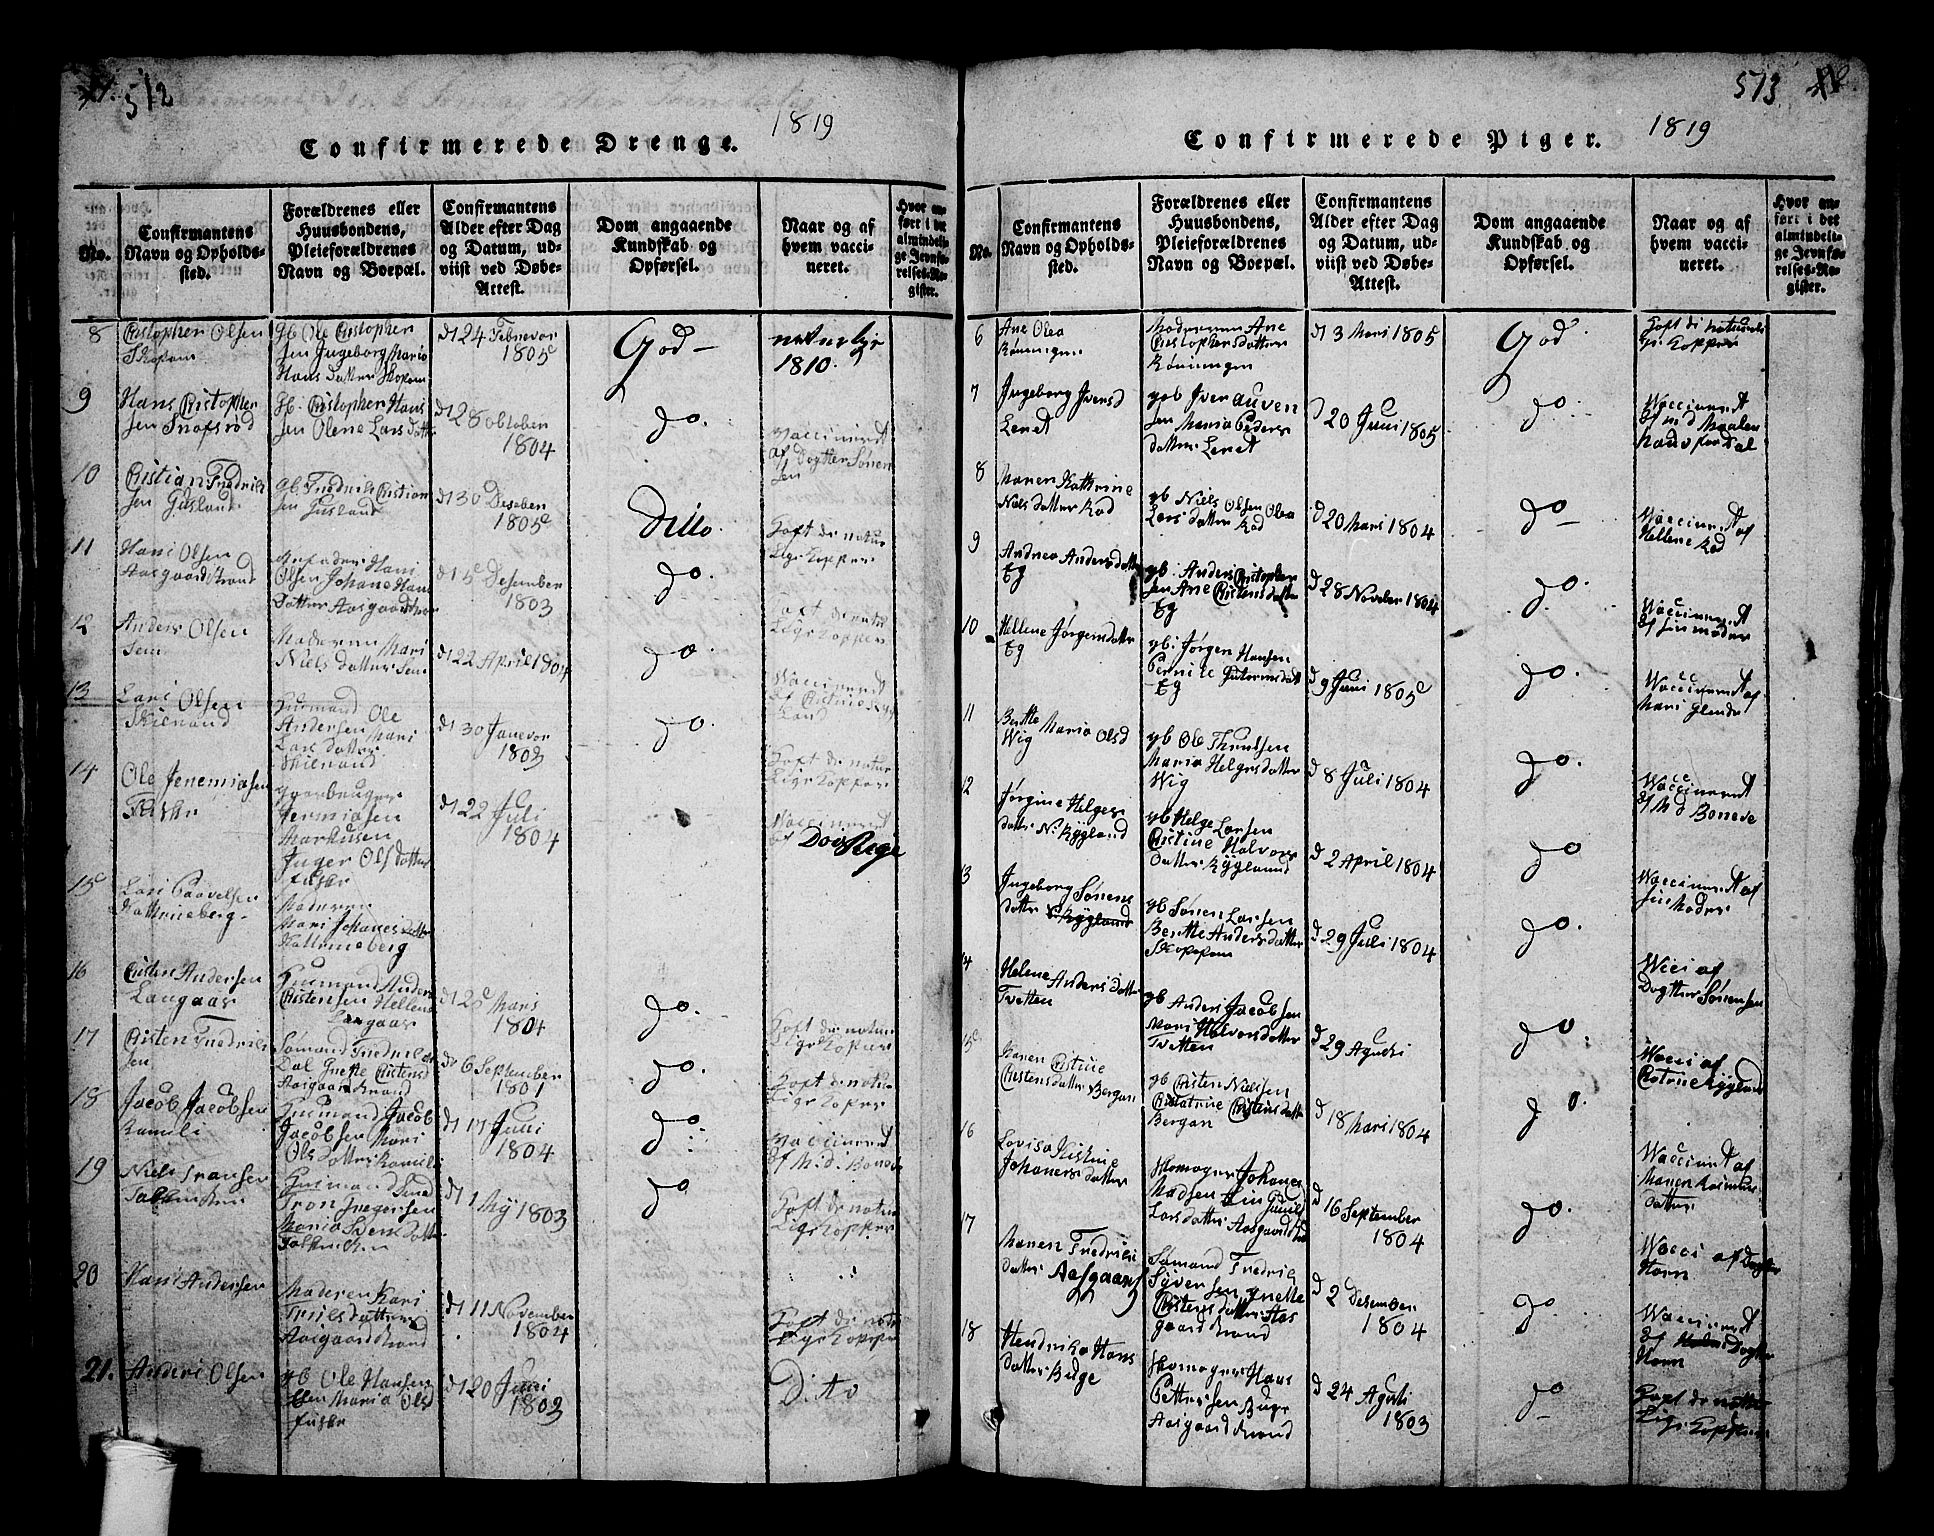 512
1819
Confirmerede Drenge.
No.
Confirmantens
Navn og Opholds-
sted.
Forældrenes eller
Huusbondens,
Pleieforældrenes
Navn og Boepæl.
Confirmantens
Alder efter Dag
og Datum, ud-
viist ved Døbe-
Attest.
Dom angaaende
Kundskab og
Opførsel.
Naar og af
hvem vacci-
neret.
Hvor an-
ført i det
almindeli-
ge Jevnfø-
relses-Re-
gister.
8
Cristopher Olsen
Skopum
gb Ole Cristopher
sen Ingeborg Maria
Hans datter Skopum
d 24 Februar
1805
God
naturlige
1810.
9
Hans Cristopher
sen
gb. Cristopher Hans
sen Olene Lars datter
d 28 October
1804
do.
Vaccineret
af Dogtter Søren
sen
10
Cristian Fredrik
sen Gusland
gb Fredrik Cristian
sen Gusland
d 30 Desember
1805
Ditto.
Haft de natur
lige Kopper
11
Hans Olsen
Aasgaardstrand
Hans
Olsen Johane Hans
datter Aasgaardstran
d 15 Desember
1803
do.
Haft de natur
lige Kopper
12
Anders Olsen
Sem
Moderen Mari
Niels datter Sem
d 22 April 1804
do.
Vaccineret
af Cristine Ryg
land
13
Lars Olsen
Skienand
Husmand
Andersen Ole
Lars datter Mari
Skienand
d 30 Januar
1803
do.
Haft de natur
lige Kopper
14
Ole Jeremiasen
gaarbruger
Jermiasen
Markusen
Inger Olsdatter
d 22 Juli
1804
Vaccineret
af
15
Lars Paavelsen
Kattrineberg
Moderen
Mari Johanes datter
Kattrineberg
16
Cristen Andersen
Langaas
Husmand Anders
Cristensen Hellene
Langaas
d 25 Mars
1804
do.
Haft de natur
lige Kopper
17
Cristen Fredrik
sen
Sømand Fredrik
Dal Cristens
Aasgaardstrand
d 6 September
1801
do.
Haft de natu
lige Kopper
18
Jacob Jacobsen
Ramsli
Husmand Jacob
Jacobsen Mari
Ols datter Ramsli
d 17 Juli
1804
do
Vaccineret
af Md Boneve
19
Niels Transen
Husmand
Tron Iversen
Maria Svens datter
d 1 Mÿ 1803
do
Haft de natur
lige Kopper
20
Hans Andersen
Moderen Kari
Truls datter
Aasgaardstrand
d 11 November
1804
Haft de natu
lige Kopper
21.
Anders Olsen
gb Ole Hansen
Maria Ols
d 20 Juni
1803
Dito
573
1819
Confirmerede Piger.
No.
Confirmantens
Navn og Opholds-
sted.
Forældrenes eller
Huusbondens,
Pleieforældrenes
Navn og Boepæl.
Confirmantens
Alder efter Dag
og Datum, ud-
viist ved Døbe-
Attest.
Dom angaaende
Kundskab og
Opførsel.
Naar og af
hvem vacci-
neret.
Hvor an-
ført i det
almindeli-
ge Jevnfø-
relses-Re-
gister.
6
Ane Olea
Rønningen
Moderen Ane
Cristophersdatter
Rønningen
d 3 Mars 1805
God
Haft de naturli
ge Kopper
7
Ingeborg Ivers d
Leret
gb Iver
sen Maria Peders
datter Leret
d 20 Juni 1805
do.
Waccineret
af md Maalen
8
Maren Kathrine
Niels datter Rød
gb Niels Olsen Olea
Lars datter Rød
d 20 Mars 1804
do
Waccineret af
Hellene Rød
9
Andrea Andersdatter
Eg
gb. Anders Cristopher
sen Ane Cristens datter
Eg
d 28 November 1804
do.
Waccineret
af sin moder
10
Hellene Jørgensdatter
Eg
gb. Jørgen Hansen
Pernille Gutormsdatt
Eg
d 9 Juni 1805
do.
Waccineret af
Mari
11
Berthe Maria Olsd
Wig
gb Ole Thrulsen
Maria Helgesdatter
Wig
d 8 Juli 1804
do.
Waccineret
af Md Boneve
12
Jørgine Helges
datter N. Rygland
gb Helge Larsen
Cristine Halvors
datter Rygland
d 2 April 1804
do
Waccineret af
sin Moder
13
Ingeborg Sørens
datter Rygland
gb Søren Larsen
Berthe Anders datter
Skoppum
d 29 Juli 1804
do.
Wcci af
Dogtter Sørensen
14
Helene Anders datter
Tvetten
gb Anders Jacobsen
Mari Halvorsdatter
Tvetten
d 29 Agusti
do
Wacci af
Catrine Rygland
15
Karen Cistine
Cristensdatter Bergan
gb Cristen Nielsen
Catrine Cristensdatter
Bergan
d 18 Mars 1804
do.
Waccineret af
Maren Rasmus
datter
16
Lovisa Kistine
Johanes datter
Skomager Johanes
Madsen
Larsdatter Aasgaardstrd
d 16 September
1804
do.
Wacci af Dogtr
Horn
17
Maren Fredriks
datter Aasgaars
Sømand Fredrik
Syversen Anette
Cristens datter Aas
gaardstrand
d 2 Desember
1804
do.
Waccineret
af Dogter
Horn
18
Hendrika Hans
datter Buge
Skomager Hans
Pettersen Buge
Aasgaardstrand
d 24 Agusti
1803
do
Haft de natur
lige Kopper